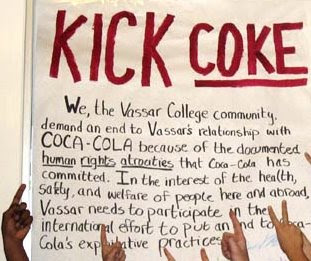 KICK COKE
We, the Vassar College community,
demand an end to Vassar's relationship with
COCA-COLA because of the documented
human rights atrocities that Coca-Cola has
committed. In the interest of the health,
safety, and welfare of people here and abroad,
Vassar needs to participate in the
international effort to put an end to Coca-
Cola's exploitative practices.